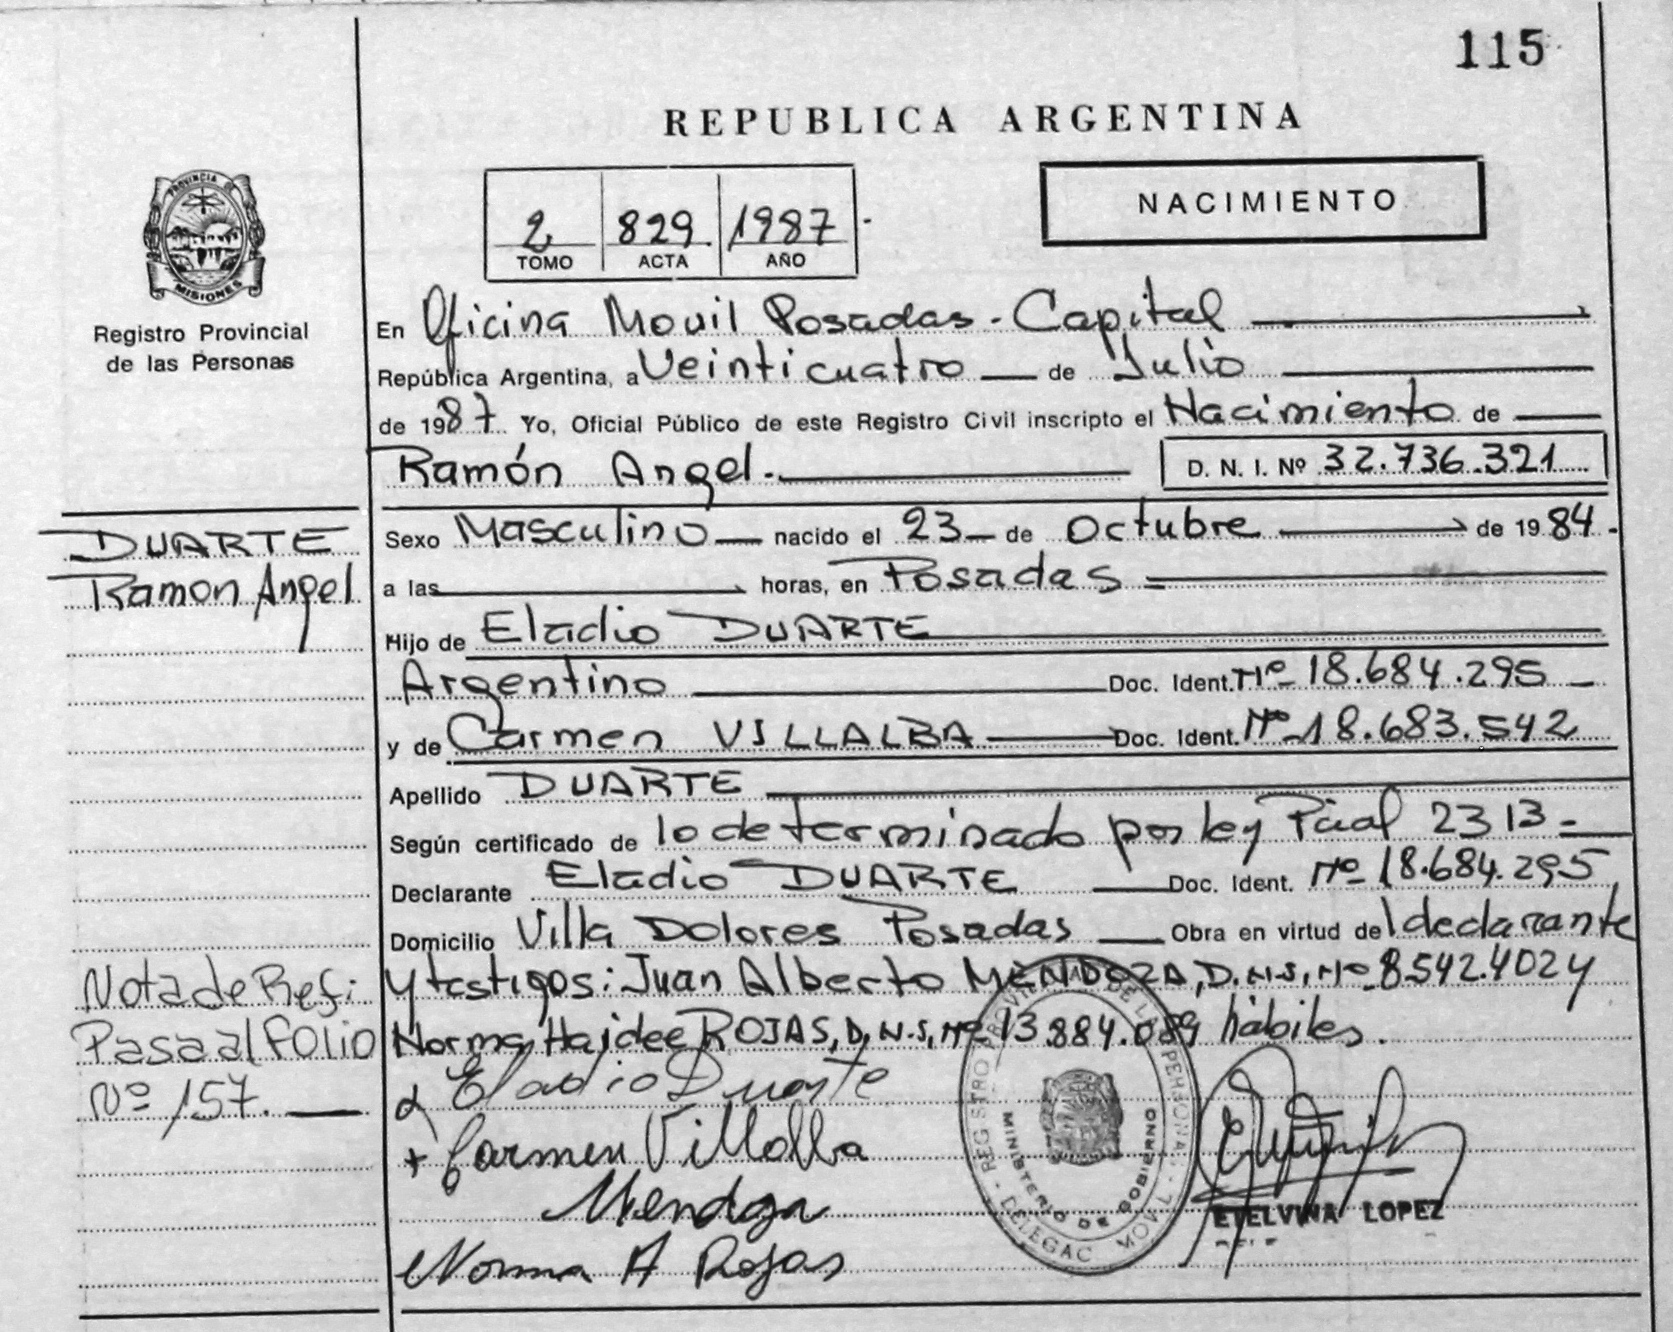 115
REPUBLICA ARGENTINA
PROVINCIA DE
MISIONES
Registro Provincial
de las Personas
2 829 1987
TOMO ACTA AÑO
NACIMIENTO
En Oficina Movil Posadas - Capital
República Argentina, a Veinticuatro de Julio
de 1987. Yo, Oficial Público de este Registro Civil inscripto el Nacimiento de
Ramón Angel.- D. N. I. Nº 32.736.321
DUARTE
Ramon Angel
Sexo Masculino nacido el 23 de Octubre de 1984.
a las horas, en Posadas
Hijo de Eladio DUARTE
Argentino Doc. Ident. Nº 18.684.295
y de Carmen VILLALBA Doc. Ident. Nº 18.683.542
Apellido DUARTE
Según certificado de lo determinado por ley Pcial 2313 -
Declarante Eladio DUARTE Doc. Ident. Nº 18.684.295
Domicilio Villa Dolores Posadas Obra en virtud del declarante
y testigos: Juan Alberto MENDOZA, D.N.I, Nº 8.542.402 y
Norma Haidee ROJAS, D.N.I, Nº 13.884.089 hábiles.
Nota de Ref:
Pasa al FOLIO
Nº 157.
Eladio Duarte
+ Carmen Villalba
Mendoza
Norma A Rojas
REGISTRO PROVINCIAL DE LAS PERSONAS - DELEGAC MOVIL -
MINISTERIO DE GOBIERNO
ETELVINA LOPEZ